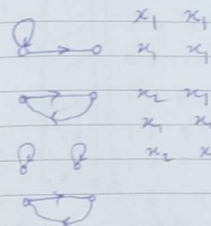 x₁ x₁
x₁ x₁
x₂ x₁
x₁
x₂